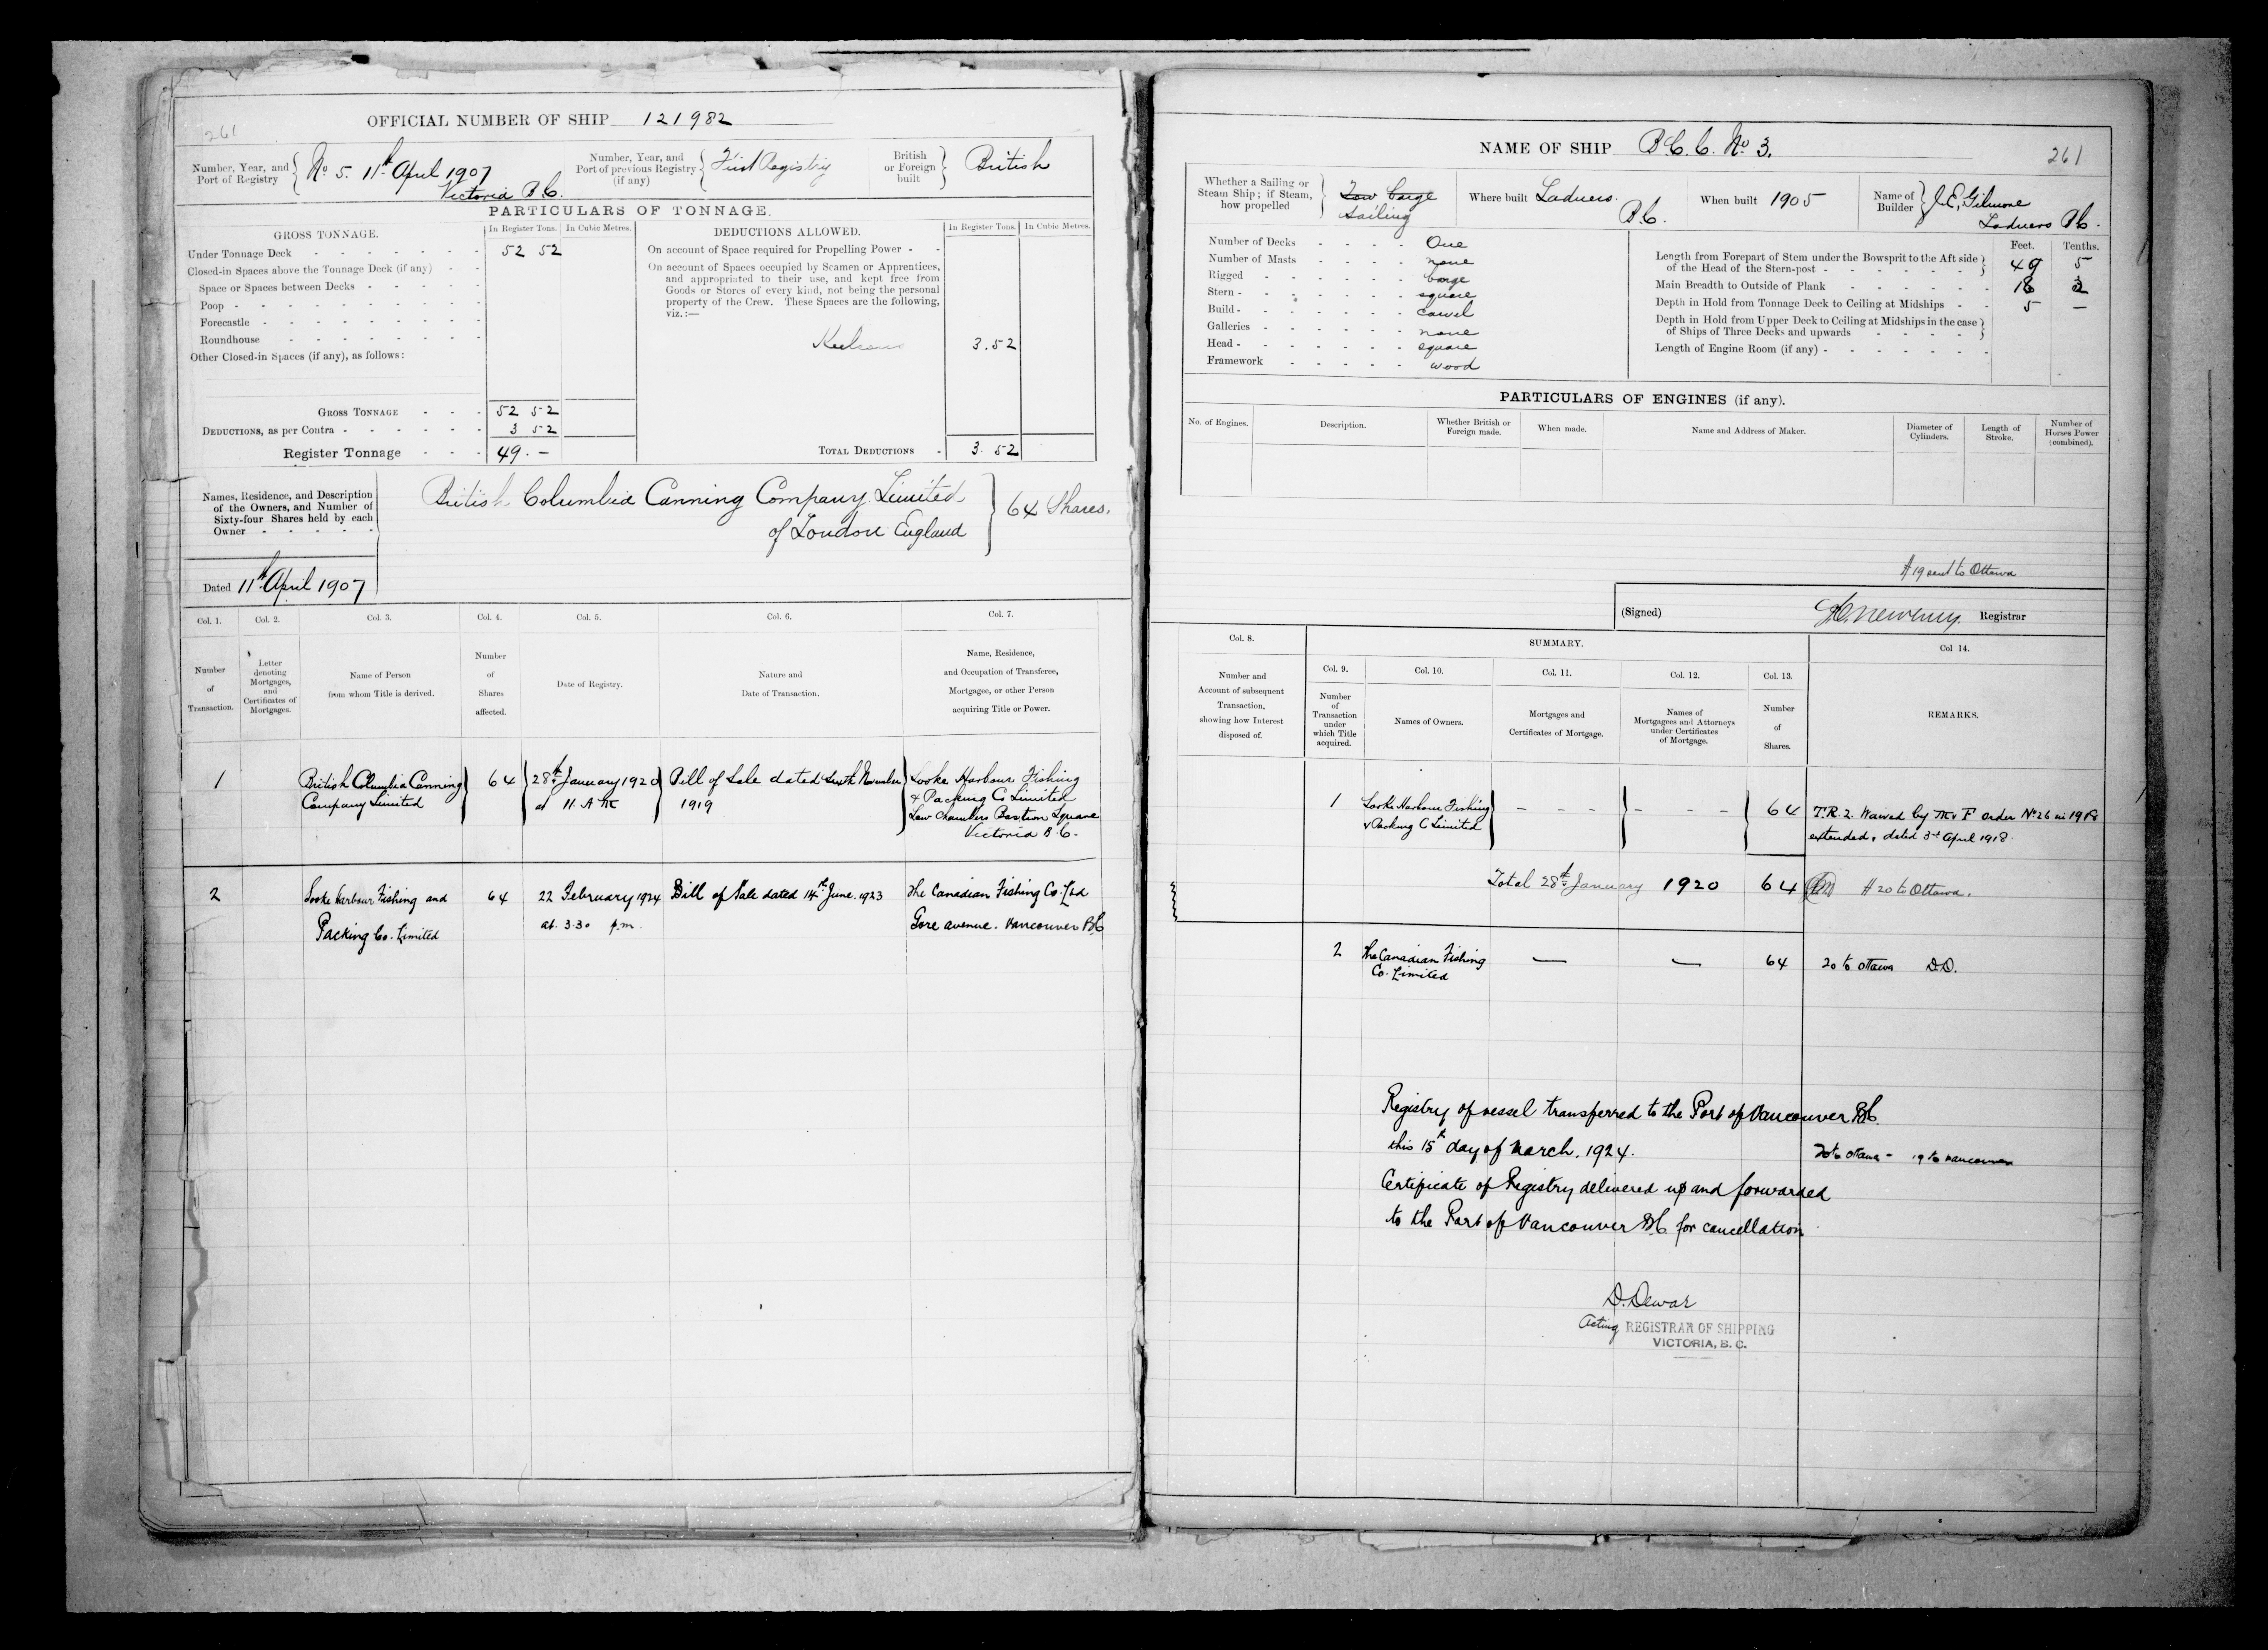 261
OFFICIAL NUMBER OF SHIP 121982
Number, Year, and Port of Registry
No 5. 11th April 1907
Victoria B.C.
Number, Year, and Port of previous Registry (if any)
First Registry
British or Foreign built
British
PARTICULARS OF TONNAGE.
GROSS TONNAGE.
In Register Tons.
In Cubic Metres.
DEDUCTIONS ALLOWED.
In Register Tons.
In Cubic Metres.
Under Tonnage Deck 52 52
Closed-in Spaces above the Tonnage Deck (if any)
Space or Spaces between Decks
Poop
Forecastle
Roundhouse
Other Closed-in Spaces (if any), as follows:
On account of Space required for Propelling Power
On account of Spaces occupied by Seamen or Apprentices,
and appropriated to their use, and kept free from
Goods or Stores of every kind, not being the personal
property of the Crew. These Spaces are the following,
viz.:—
Keelsons 3.52
GROSS TONNAGE 52 52
DEDUCTIONS, as per Contra 3 52
Register Tonnage 49. —
TOTAL DEDUCTIONS 3. 52
Names, Residence, and Description
of the Owners, and Number of
Sixty-four Shares held by each
Owner
British Columbia Canning Company Limited
of London England
64 Shares.
Dated 11th April 1907
Col. 1.
Number of Transaction.
Col. 2.
Letter denoting Mortgages, and Certificates of Mortgages.
Col. 3.
Name of Person from whom Title is derived.
Col. 4.
Number of Shares affected.
Col. 5.
Date of Registry.
Col. 6.
Nature and Date of Transaction.
Col. 7.
Name, Residence, and Occupation of Transferee, Mortgagee, or other Person acquiring Title or Power.
1
British Columbia Canning
Company Limited
64
28th January 1920
at 11. A M
Bill of Sale dated Sixth November
1919
Sooke Harbour Fishing
& Packing Co Limited
Law Chambers Bastion Square
Victoria B.C.
2
Sooke Harbour Fishing and
Packing Co. Limited
64
22 February 1924
at 3.30 p.m.
Bill of Sale dated 14th June. 1923
The Canadian Fishing Co. Ltd
Gore avenue. Vancouver BC
NAME OF SHIP B.C.C. No 3.
261
Whether a Sailing or
Steam Ship; if Steam,
how propelled
Tow barge
Sailing
Where built Ladners.
B.C.
When built 1905
Name of Builder
J.E. Gilmore
Ladners B.C.
Number of Decks One
Number of Masts none
Rigged barge
Stern square
Build carvel
Galleries none
Head square
Framework wood
Feet. Tenths.
Length from Forepart of Stem under the Bowsprit to the Aft side
of the Head of the Stern-post 49 5
Main Breadth to Outside of Plank 18
Depth in Hold from Tonnage Deck to Ceiling at Midships 5 —
Depth in Hold from Upper Deck to Ceiling at Midships in the case
of Ships of Three Decks and upwards
Length of Engine Room (if any)
PARTICULARS OF ENGINES (if any).
No. of Engines.
Description.
Whether British or Foreign made.
When made.
Name and Address of Maker.
Diameter of Cylinders.
Length of Stroke.
Number of Horses Power (combined).
A 19 sent to Ottawa
(Signed) Registrar
Col. 8.
Number and Account of subsequent Transaction, showing how Interest disposed of.
SUMMARY.
Col. 9.
Number of Transaction under which Title acquired.
Col. 10.
Names of Owners.
Col. 11.
Mortgages and Certificates of Mortgage.
Col. 12.
Names of Mortgagees and Attorneys under Certificates of Mortgage.
Col. 13.
Number of Shares.
Col 14.
REMARKS.
1
Sooke Harbour Fishing
& Packing C Limited
- - -
- - -
64
T.R.2. Waived by M & F order No 26 in 1918
extended, dated 3rd April 1918.
Total 28th January 1920 64
A 20 to Ottawa.
2
The Canadian Fishing
Co. Limited
—
—
64
20 to Ottawa D.D.
Registry of vessel transferred to the Port of Vancouver BC.
this 15th day of March, 1924.
20 to Ottawa - 19 to Vancouver
Certificate of Registry delivered up and forwarded
to the Port of Vancouver BC for cancellation
D. Dewar
Acting REGISTRAR OF SHIPPING
VICTORIA, B. C.